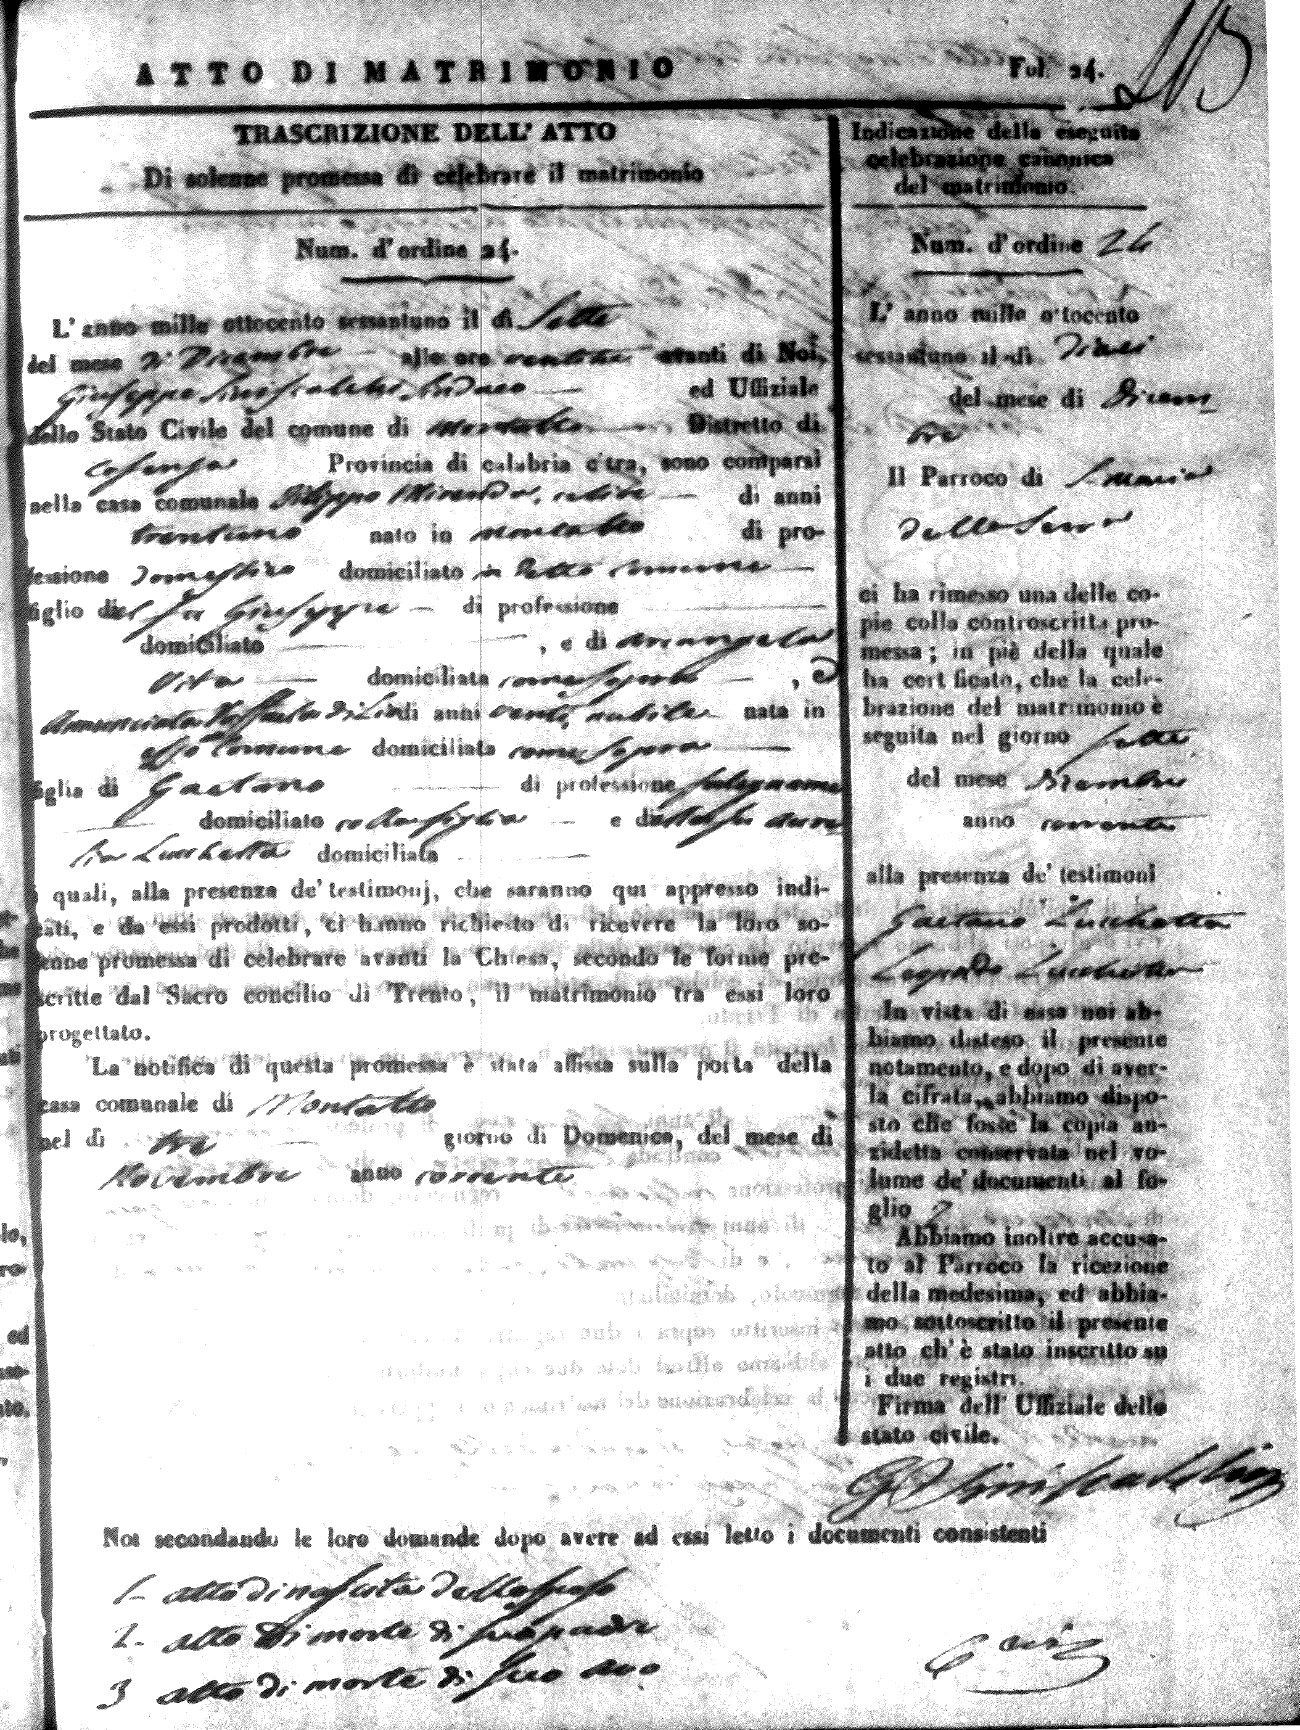 ATTO DI MATRIMONIO
Fol. 24.
TRASCRIZIONE DELL' ATTO
Di solenne promessa di celebrare il matrimonio
Num. d'ordine 24.
L' anno mille ottocento sessantuno il dì Sette
del mese di Dicembre alle ore avanti di Noi,
Giuseppe Siniscalchi Sindaco ed Uffiziale
dello Stato Civile del comune di Montalto Distretto di
Cosenza Provincia di calabria citra, sono comparsi
nella casa comunale Filippo Miranda, celibe di anni
trentuno nato in Montalto di pro-
fessione domestico domiciliato in detto Comune
figlio del fu Giuseppe di professione
domiciliato , e di Arcangela
Vita domiciliata come sopra , e
Annunciata Raffaela di Lio di anni venti, nubile nata in
esso Comune domiciliata come sopra
figlia di Gaetano di professione falegname
domiciliato colla figlia e della fu
Lucchetta domiciliata
i quali, alla presenza de' testimonj, che saranno qui appresso indi-
cati, e da essi prodotti, ci hanno richiesto di ricevere la loro so-
lenne promessa di celebrare avanti la Chiesa, secondo le forme pre-
scritte dal Sacro concilio di Trento, il matrimonio tra essi loro
progettato.
La notifica di questa promessa è stata affissa sulla porta della
casa comunale di Montalto
nel dì tre giorno di Domenica, del mese di
Novembre anno corrente
Indicazione della eseguita
celebrazione canonica
del matrimonio.
Num. d'ordine 24
L' anno mille ottocento
sessantuno il dì dieci
del mese di Dicem
bre
Il Parroco di S. Maria
della Serra
ci ha rimesso una delle co-
pie colla controscritta pro-
messa; in piè della quale
ha certificato, che la cele-
brazione del matrimonio è
seguita nel giorno sette
del mese Dicembre
anno corrente
alla presenza de' testimoni
Gaetano Lucchetta
Leopoldo Lucchetta
In vista di essa noi ab-
biamo disteso il presente
notamento, e dopo di aver-
la cifrata, abbiamo dispo-
sto che fosse la copia an-
zidetta conservata nel vo-
lume de' documenti al fo-
glio
Abbiamo inoltre accusa-
to al Parroco la ricezione
della medesima, ed abbia-
mo sottoscritto il presente
atto ch' è stato inscritto su
i due registri.
Firma dell' Uffiziale dello
stato civile.
G Siniscalchi
Noi secondando le loro domande dopo avere ad essi letto i documenti consistenti
1- atto di nascita dello sposo
2- atto di morte di suo padre
3 atto di morte di suo avo